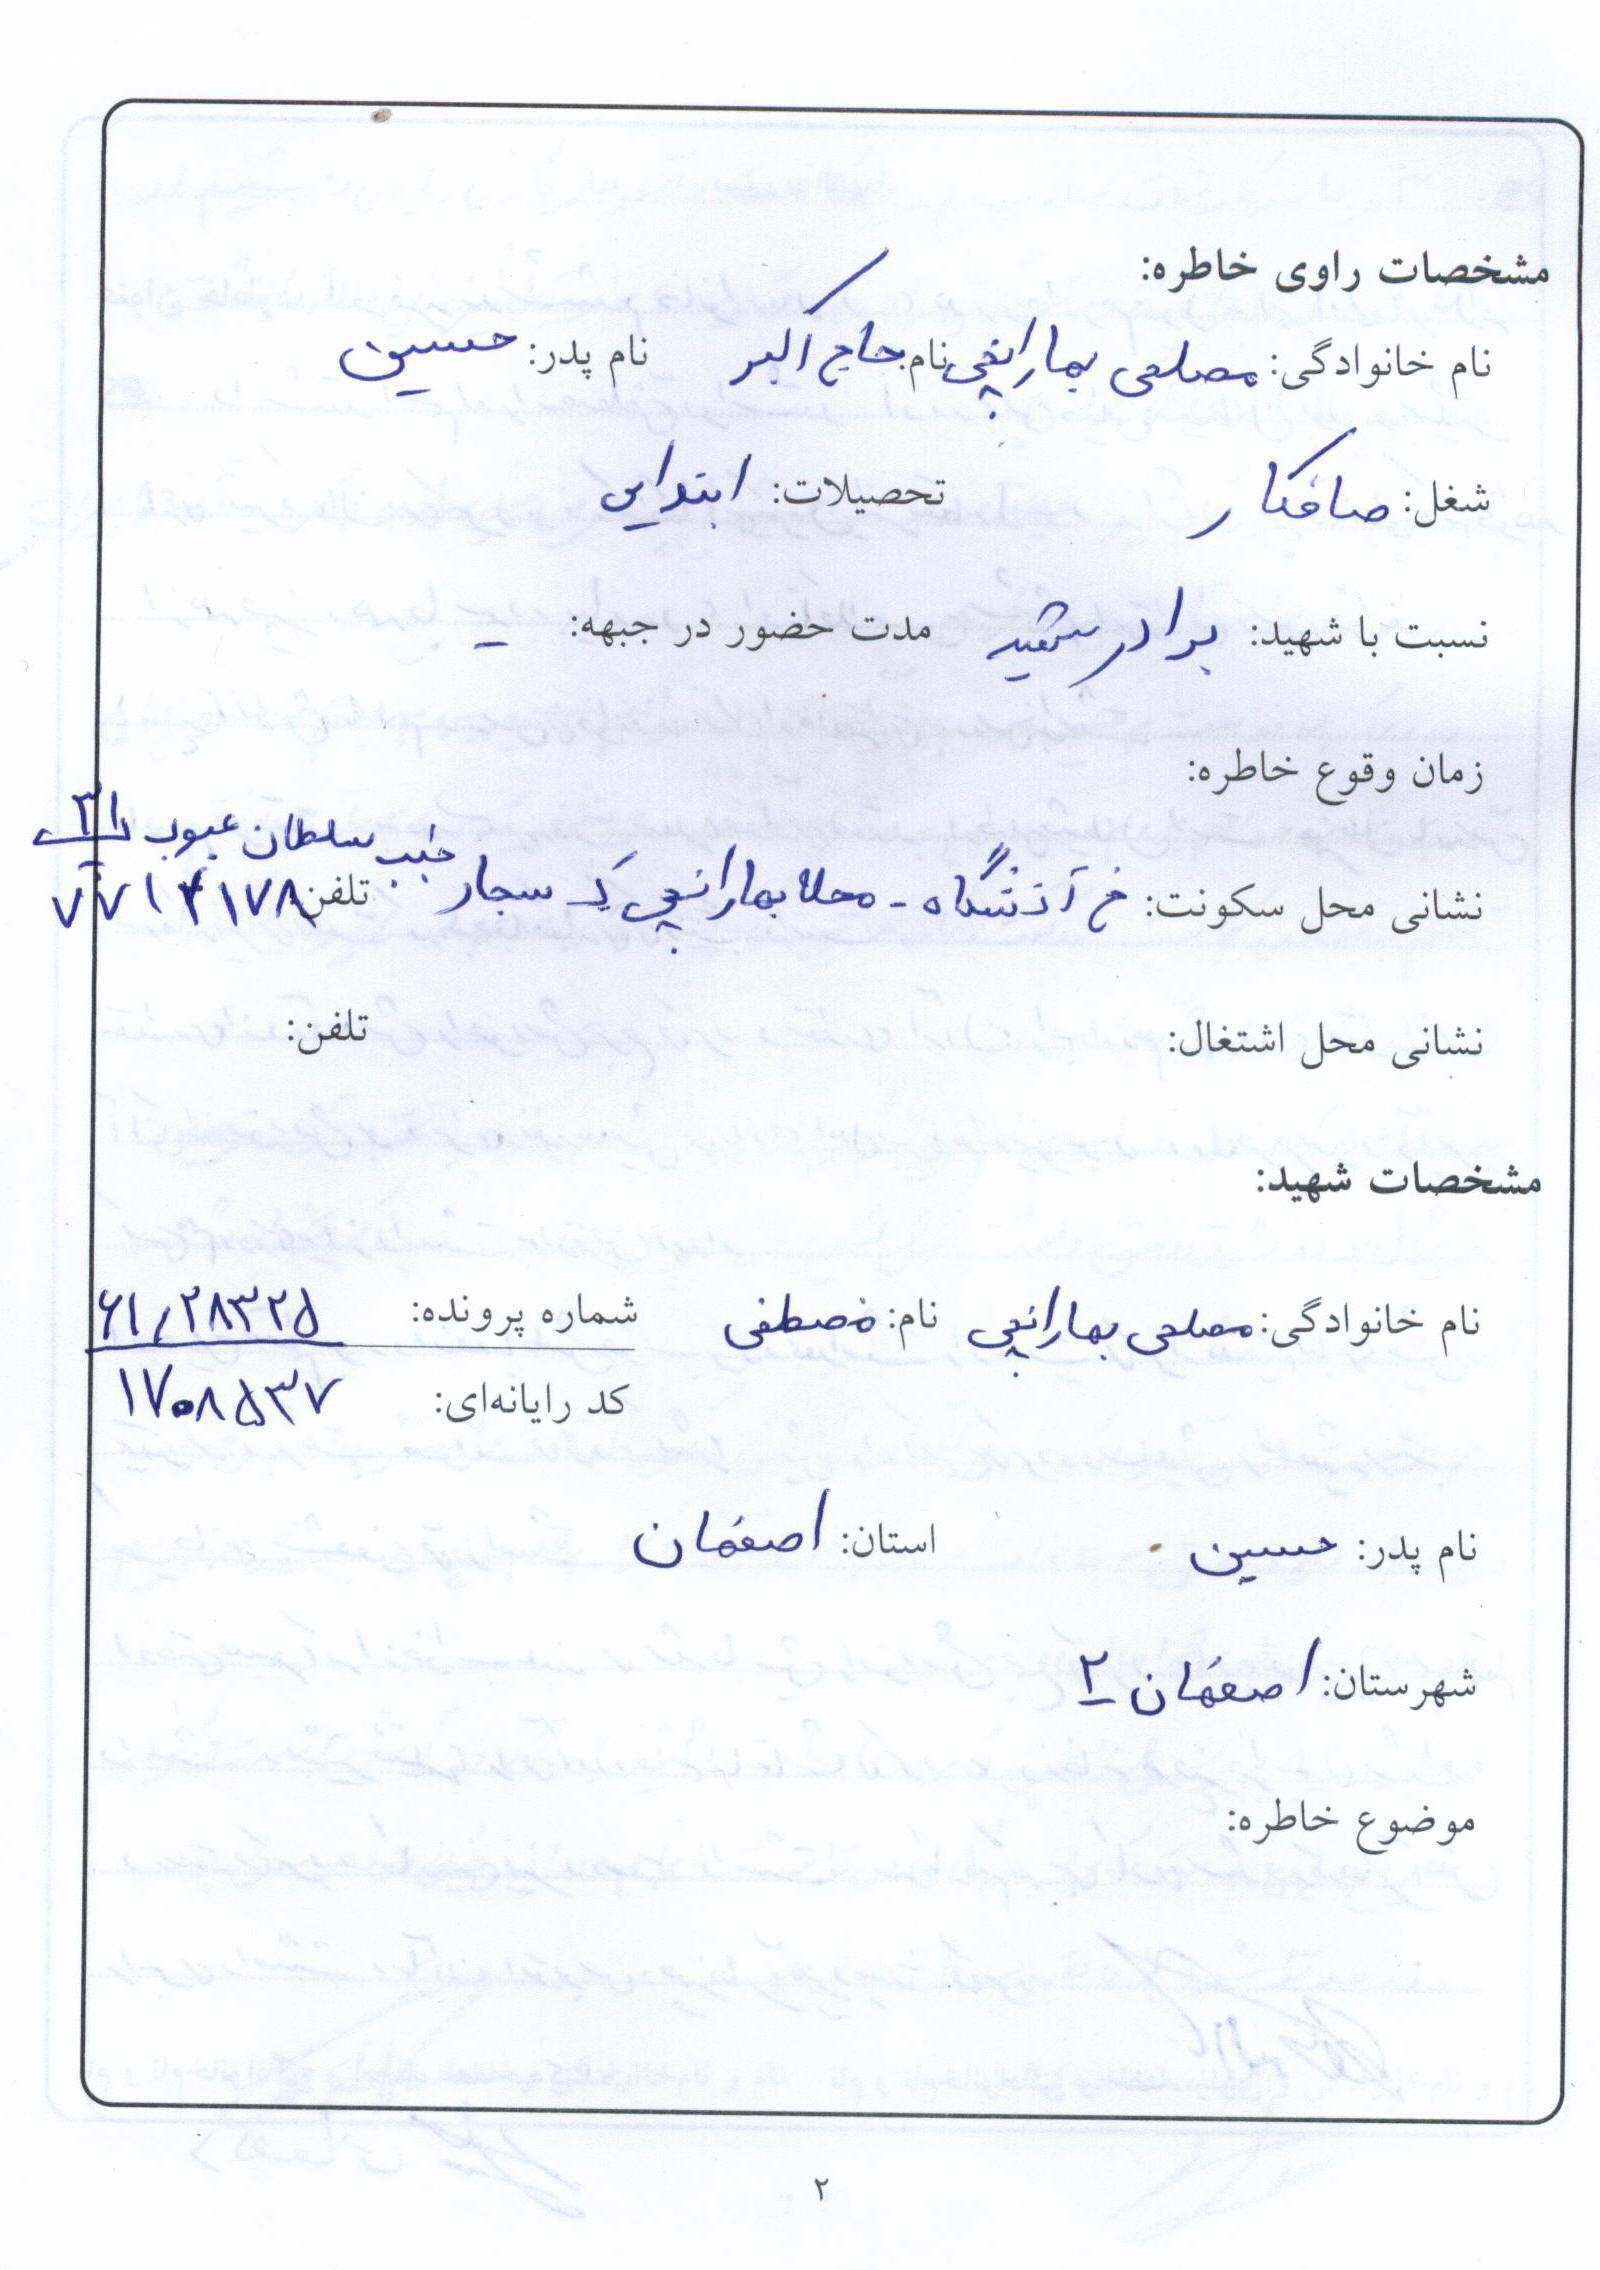 مشخصات راوی خاطره:
نام خانوادگی: مصلحی بهارانچی نام: حاج اکبر نام پدر: حسین
شغل: صافکار تحصیلات: ابتدایی
نسبت با شهید: برادر شهید مدت حضور در جبهه: -
زمان وقوع خاطره:
نشانی محل سکونت: خ آتشگاه - محله بهارانچی ک سجاد جنب سلطان پلاک ۳۱ تلفن ۷۷۱۴۱۷۸
نشانی محل اشتغال: تلفن:
مشخصات شهید:
نام خانوادگی: مصلحی بهارانچی نام: مصطفی شماره پرونده: ۶۱/۲۸۳۲۵
کد رایانه‌ای: ۱۷۰۸۵۳۷
نام پدر: حسین استان: اصفهان
شهرستان: اصفهان ۲
موضوع خاطره:
۲